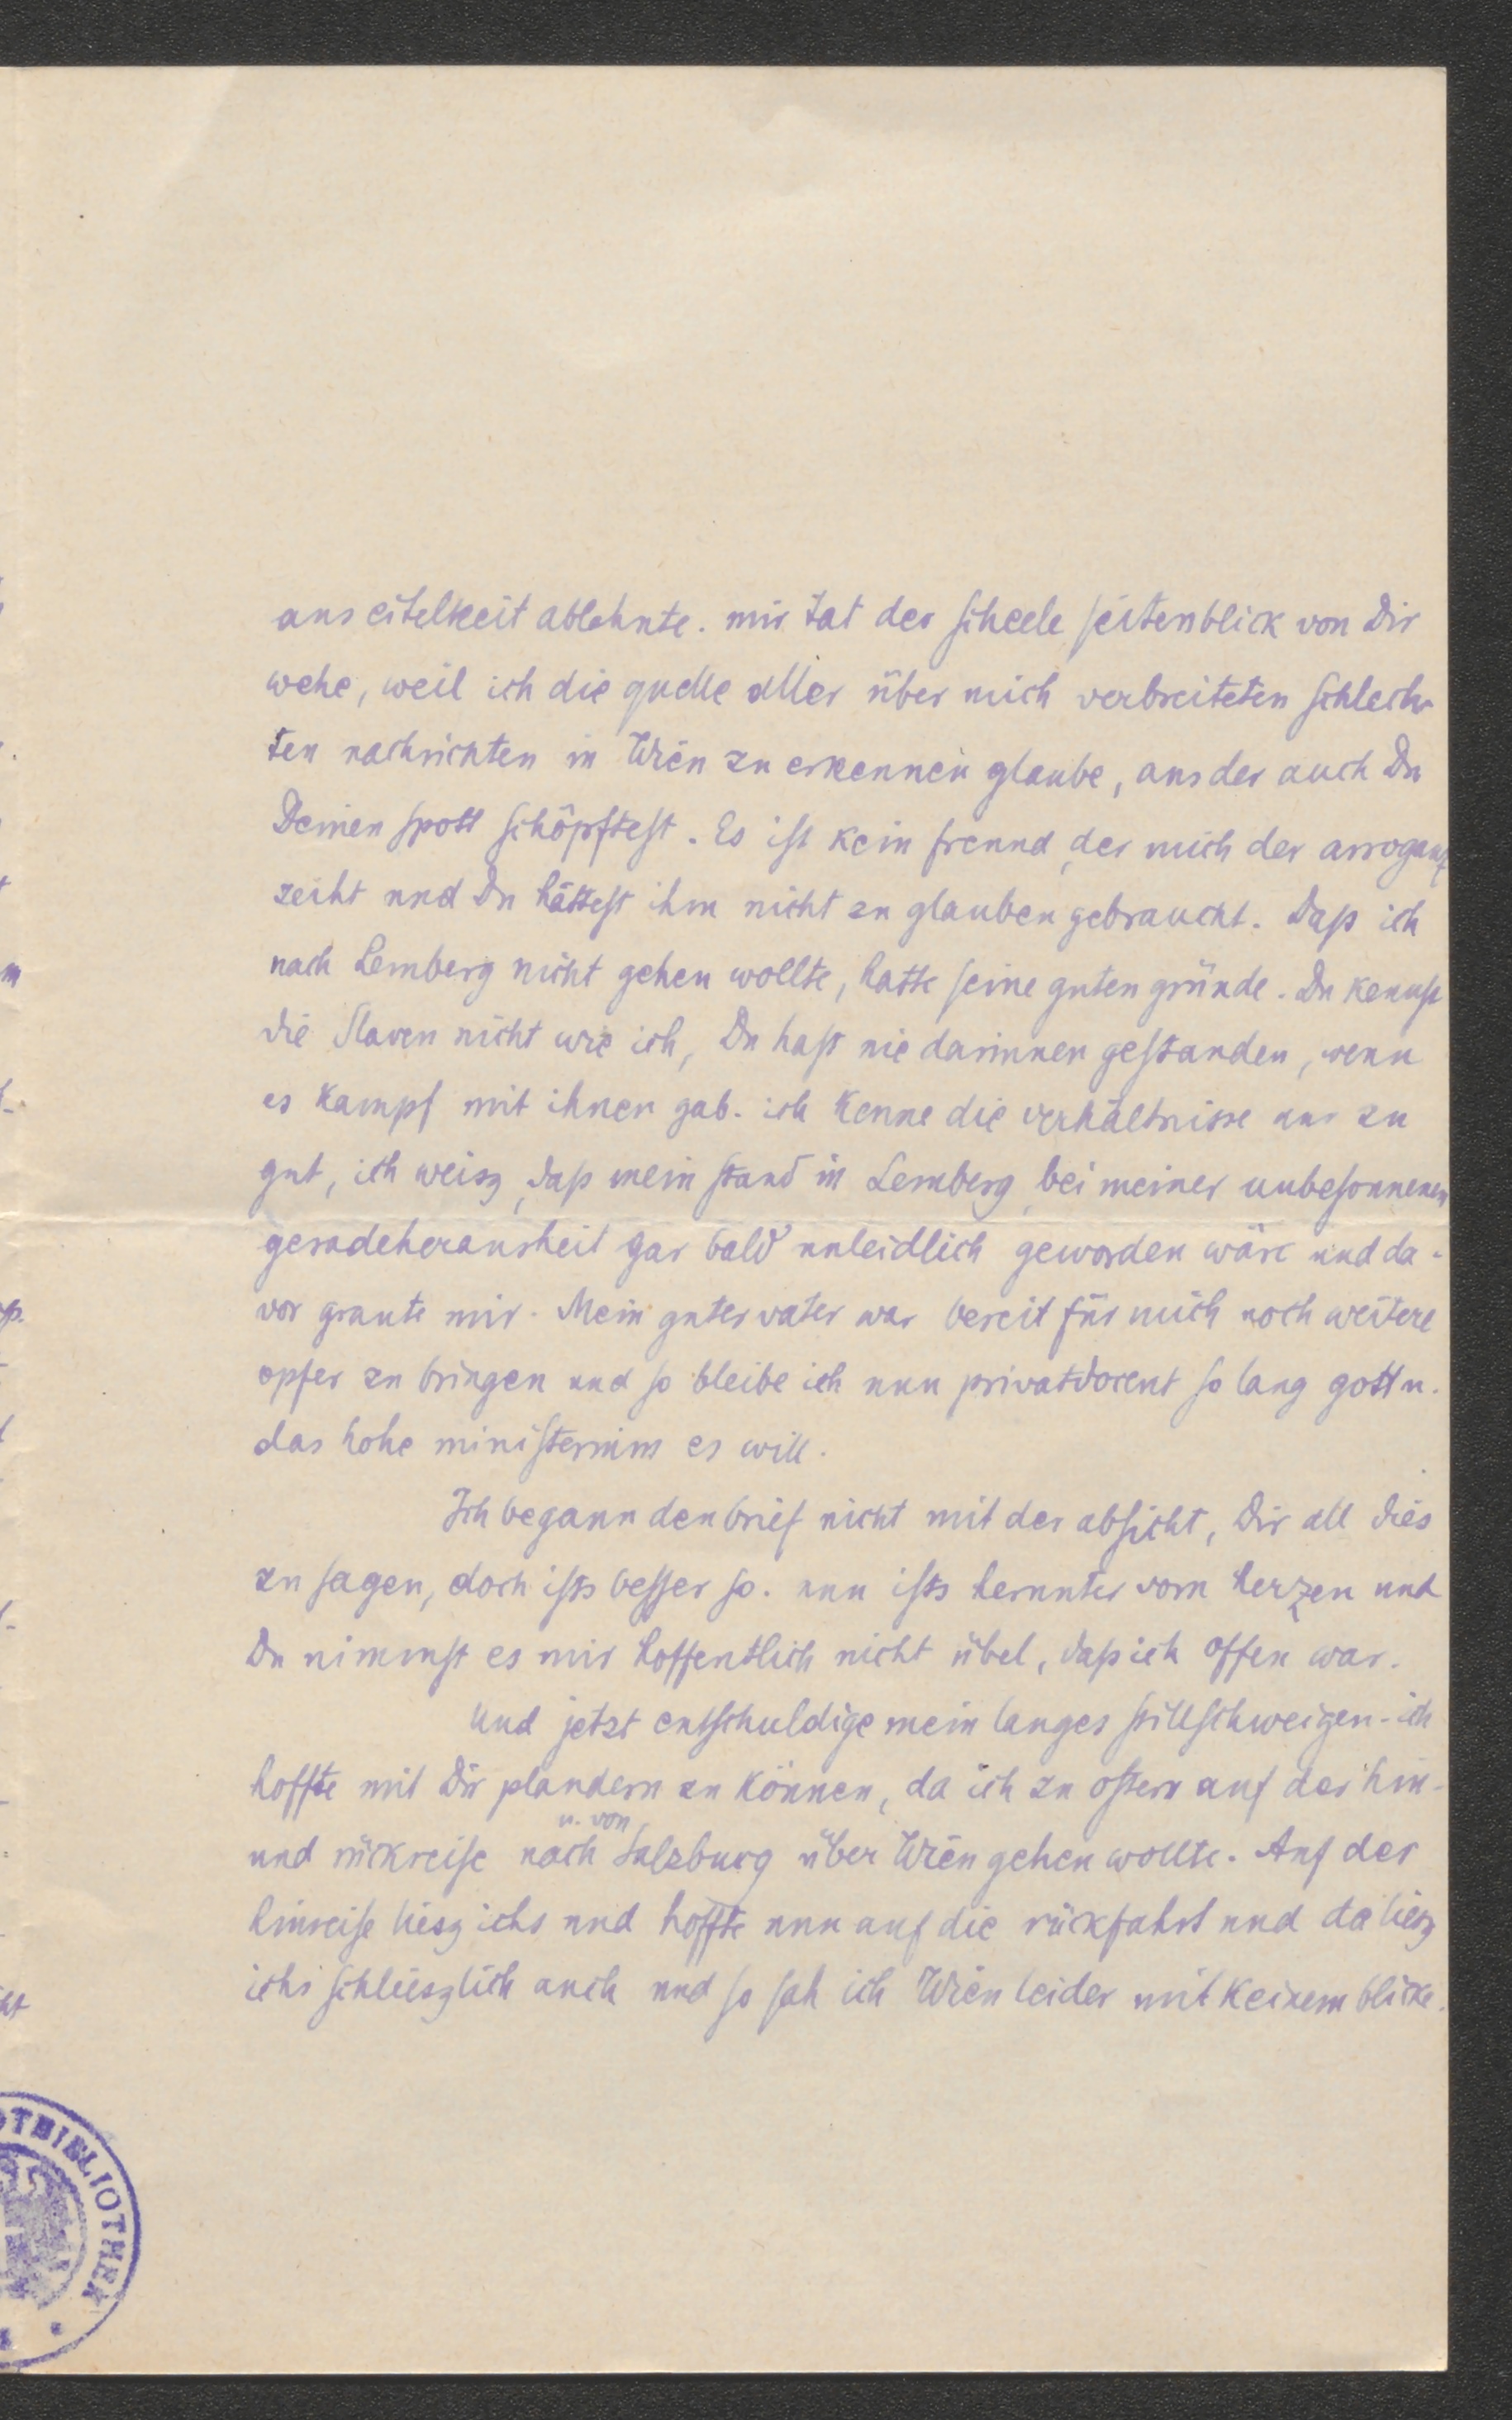 aus eitelkeit ablehnte. mir tat der scheele seitenblick von Dir
wehe, weil ich die quelle aller über mich verbreiteten schlech-
ten nachrichten in Wien zu erkennen glaube, aus der auch Du
Deinen spott schöpftest. Es ist kein freund, der mich der arroganz
zeiht und Du hättest ihm nicht zu glauben gebraucht. Daß ich
nach Lemberg nicht gehen wollte, hatte seine guten gründe. Du kennst
die Slaven nicht wie ich, Du hast nie darinnen gestanden, wenn
es kampf mit ihnen gab. ich kenne die verhältnisse nur zu
gut, ich weisz, daß mein stand in Lemberg, bei meiner unbesonnenen
geradeheransheit gar bald unleidlich geworden wäre und da-
vor graute mir. Mein guter vater war bereit für mich noch weitere
opfer zu bringen und so bleibe ich nun privatdocent so lang gott u.
das hohe ministerium es will.
Ich begann den brief nicht mit der absicht, Dir all dies
zu sagen, doch ists besser so. nun ists herunter vom herzen und
Du nimmst es mir hoffentlich nicht übel, daß ich offen war.
Und jetzt entschuldige mein langes stillschweigen - ich
hoffte mit Dir plaudern zu können, da ich zu ostern auf der hin-
u. von
und rückreise nach Salzburg über Wien gehen wollte. Auf der
hinreise liesz ichs und hoffte nun auf die rückfahrt und da liesz
ichs schlieszlich auch und so sah ich Wien leider mit keinem blicke.
OTBIBLIOTHEK